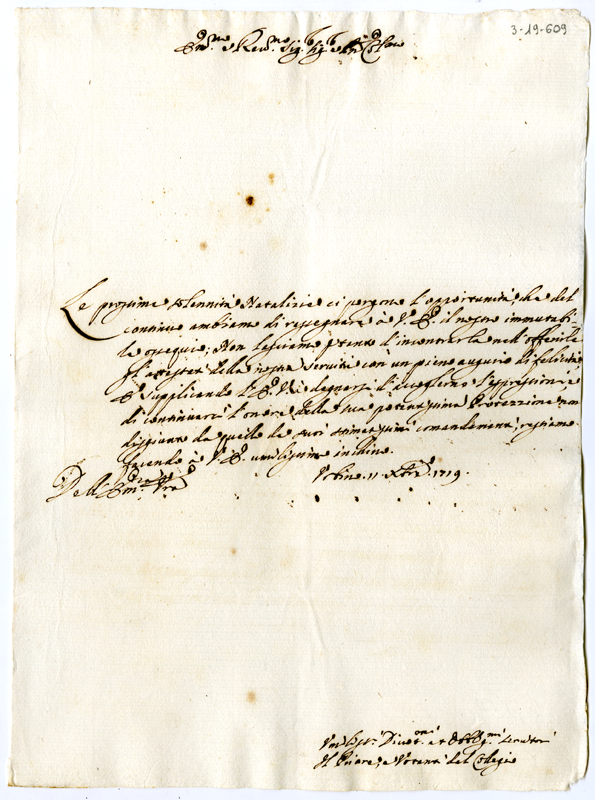 3-19-609
Em.mo e Rev.mo Sig.
Le prossime solennità Natalizie ci porgono l'opportunità, che del
continuo ambiamo di rassegnare à V. E. il nostro immutabi-
le ossequio; Non lasciamo p.tanto d'incontrarla nell'offerirle
gl'attestati della nostra servitù con un pieno augurio di felicità
E supplicando l'E. V. di degnarsi d'accoglierne l'espressioni e
di continuarci l'onore della sua Protezzione non
disgiunto da quello de suoi stimatissimi comandamenti, restiamo
facendo à V. E. umilissimo inchino.
Dell' Em.za V.ra
Urbino 11 Xbre 1719.
Um.li Divot.mi et Obblig.mi Servitori
Il Priore, e del Collegio